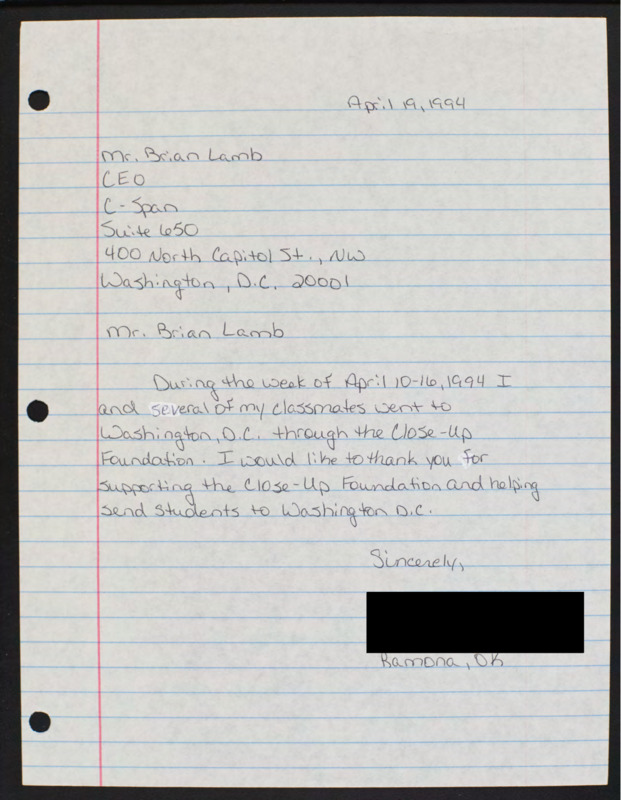 April 19, 1994
Mr. Brian Lamb
CEO
C-Span
Suite 650
400 North Capitol St., NW
Washington, D.C. 20001
Mr. Brian Lamb
During the week of April 10-16, 1994 I
and several of my classmates went to
Washington, D.C. through the Close-Up
Foundation. I would like to thank you for
supporting the Close-Up Foundation and helping
send students to Washington D.C.
Sincerely,
Ramona, OK